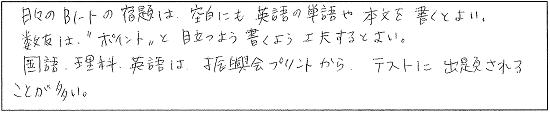 日々のBノートの宿題は、空白にも英語の単語や本文を書くとよい。
数友は、"ポイント"と目立つよう書くよう工夫するとよい。
国語、理科、英語は、振興会プリントから、テストに出題される
ことが多い。